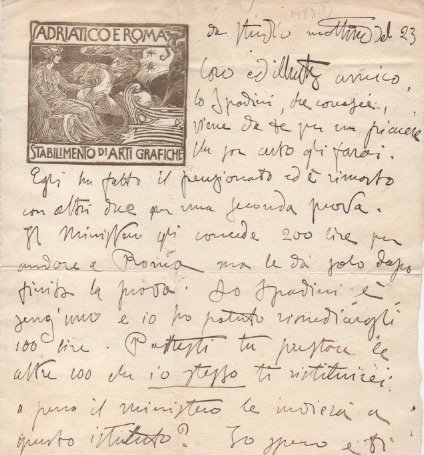 ADRIATICO E ROMA
STABILIMENTO DI ARTI GRAFICHE
da studio mattina del 23
Caro ed illustre amico,
lo Spadini, che conosci,
viene da te per un piacere
che son certo gli farai.
Egli ha fatto il pensionato ed è rimasto
con altri due per una seconda prova.
Il Ministero gli concede 200 lire per
andare a Roma ma le dà solo dopo
finita la prova. Lo Spadini è
senz'uno e io ho potuto rimediargli
100 lire. Potresti tu prestare le
altre 100 che io stesso ti restituirei
a pena il ministero le invierà a
questo istituto? Io spero e ti